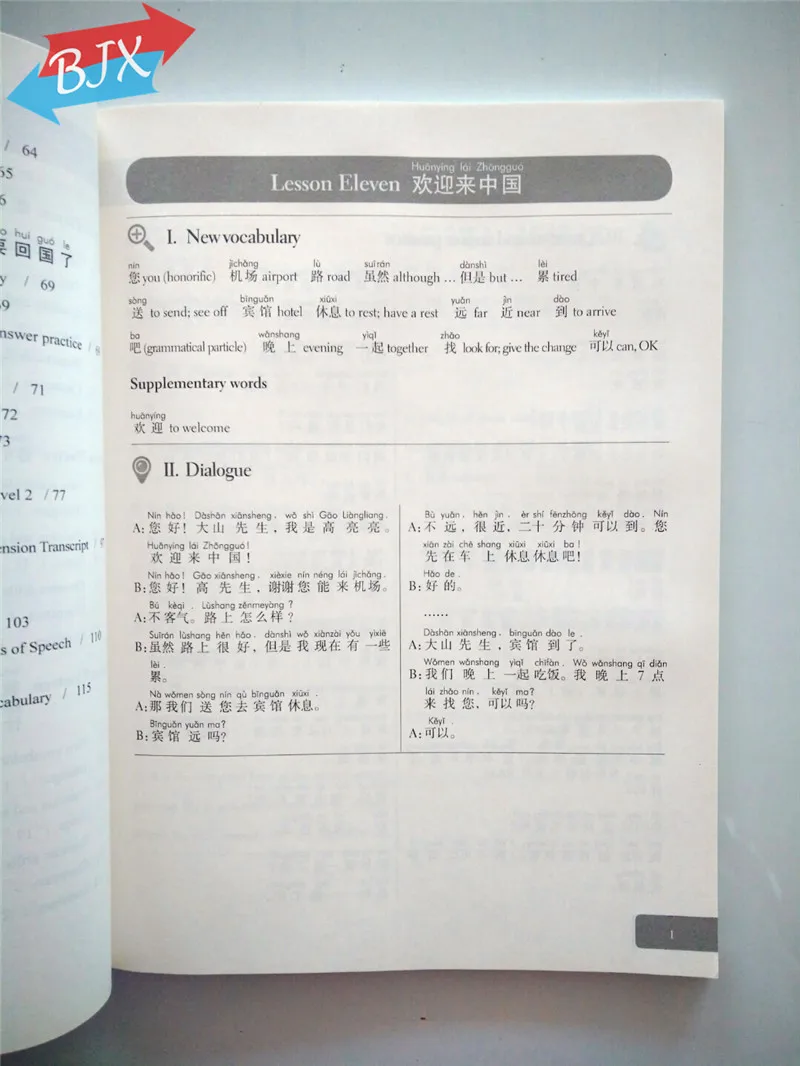 BJX
/ 64
65
6
o huí guó le
要 回 国 了
y / 69
69
nswer practice /
/ 71
72
73
vel 2 / 77
ension Transcript /
103
s of Speech / 110
cabulary / 115
Huānyíng lái Zhōngguó
Lesson Eleven 欢迎来中国
I. New vocabulary
nín jīchǎng lù suīrán dànshì lèi
您 you (honorific) 机场 airport 路 road 虽然 although … 但是 but … 累 tired
sòng bīnguǎn xiūxi yuǎn jìn dào
送 to send; see off 宾馆 hotel 休息 to rest; have a rest 远 far 近 near 到 to arrive
ba wǎnshang yìqǐ zhǎo kěyǐ
吧 (grammatical particle) 晚 上 evening 一起 together 找 look for; give the change 可以 can, OK
Supplementary words
huānyíng
欢 迎 to welcome
II. Dialogue
Nín hǎo! Dàshān xiānsheng, wǒ shì Gāo Liàngliang.
A: 您 好! 大山 先生, 我是 高 亮亮。
Huānyíng lái Zhōngguó!
欢 迎 来 中 国!
Nín hǎo! Gāo xiānsheng, xièxie nín néng lái jīchǎng.
B: 您 好! 高 先生, 谢谢 您 能 来 机场。
Bú kèqi. Lùshang zěnmeyàng?
A: 不 客气。路 上 怎么样?
Suīrán lùshang hěn hǎo, dànshì wǒ xiànzài yǒu yìxiē
B: 虽然 路上 很 好, 但是 我 现在 有 一些
lèi.
累。
Nà wǒmen sòng nín qù bīnguǎn xiūxi.
A: 那 我们 送 您 去 宾馆 休息。
Bīnguǎn yuǎn ma?
B: 宾馆 远 吗?
Bù yuǎn, hěn jìn, èr shí fēnzhōng kěyǐ dào. Nín
A: 不 远, 很 近, 二十 分钟 可以 到。您
xiān zài chē shang xiūxi xiūxi ba!
先 在 车 上 休息 休息 吧!
Hǎo de.
B: 好 的。
……
Dàshān xiānsheng, bīnguǎn dào le.
A: 大山 先生, 宾馆 到 了。
Wǒmen wǎnshang yìqǐ chīfàn. Wǒ wǎnshang qī diǎn
B: 我们 晚 上 一起 吃饭。我 晚 上 7 点
lái zhǎo nín, kěyǐ ma?
来 找 您, 可以 吗?
Kěyǐ.
A: 可以。
1